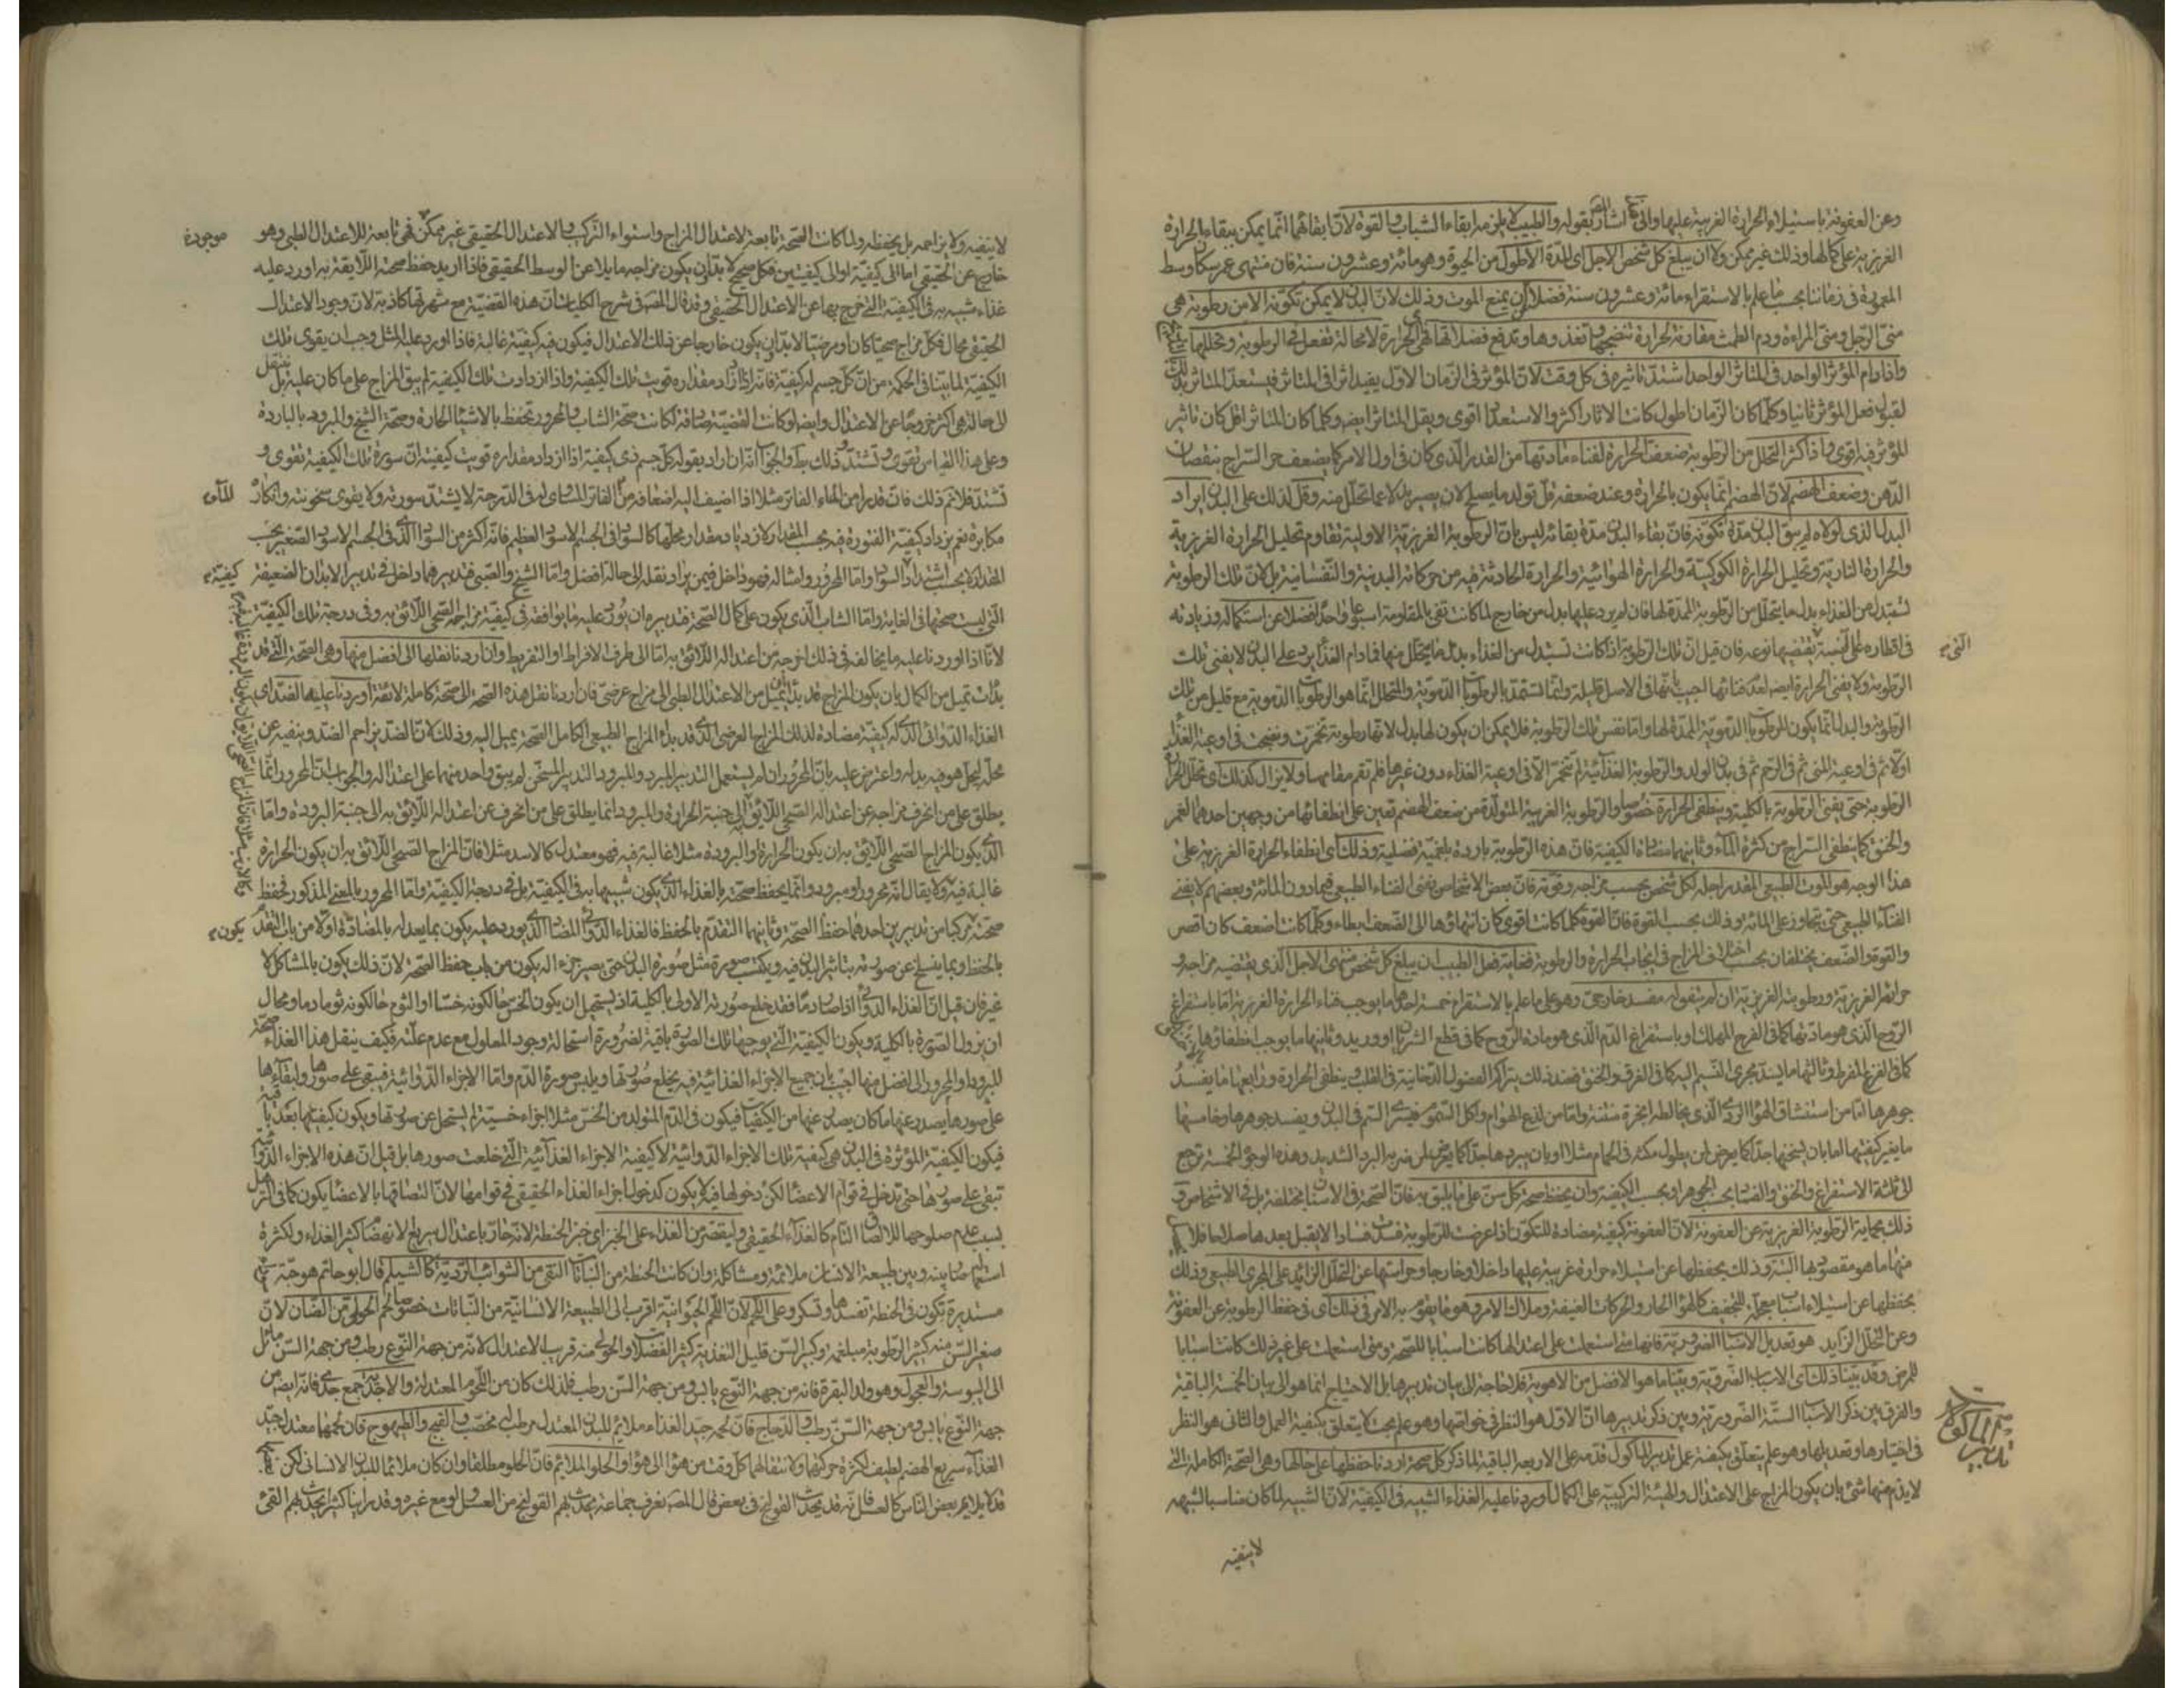 وعن العفونة باستيلاء الحرارة الغريبة عليها والى الثانى اشار المصنف بقوله والطبيب لا يلزمه ابقاء الشباب والقوة لان ابقائهما انما يمكن ببقاء الحرارة
الغريزية على كمالها وذلك غير ممكن ولا ان يبلغ كل شخص الاجل اى المدة الاطول من الحيوة وهو مائة وعشرون سنة فان منتهى عمر سكان وسط
المعمورة فى زماننا بحسب ما علم بالاستقراء مائة وعشرون سنة فضلا ان يمنع الموت وذلك لان البدن لا يمكن تكونه الا من رطوبة هى
منى الرجل ومنى المراءة ودم الطمث مقارنة لحرارة تنضجها وتغذوها وتدفع فضلاتها فهى اى الحرارة لا محالة تفعل فى الرطوبة وتحللها
واذا دام المؤثر الواحد فى المتاثر الواحد اشتد تاثيره فى كل وقت لان المؤثر فى الزمان الاول يفيد اثرا فى المتاثر فيستعد المتاثر بذلك
لقبول فعل المؤثر ثانيا وكلما كان الزمان اطول كانت الاثار اكثر والاستعداد اقوى ويقل المتاثر ايضا وكلما كان المتاثر اقل كان تاثير
المؤثر فيه اقوى واذا كثر التحلل من الرطوبة ضعف الحرارة لفناء مادتها من القدر الذى كان فى اول الامر كما يضعف حر السراج بنقصان
الدهن وضعف الهضم لان الهضم انما يكون بالحرارة وعند ضعفه قل تولد ما يصلح لان يصير بدلا عما تحلل منه وقل لذلك على البدن ايراد
البدل الذى لولاه لم يبق البدن مدة تكونه فان بقاء البدن مدة بقائه ليس بان الرطوبة الغريزية الاولية تقاوم تحليل الحرارة الغريزية
والحرارة النارية وتحليل الحرارة الكوكبية والحرارة الهوائية والحرارة الحادثة فيه من حركاته البدنية والنفسانية بل لان تلك الرطوبة
تستبدل من الغذاء بدل ما يتحلل من الرطوبة الممدة لها فان لم يرد عليها بدل من خارج لما كانت تفى بالمقاومة اسبوعا واحدا فضلا عن استكماله وزيادته
فى اقطاره على النسبة يقتضيها نوعه فان قيل ان تلك الرطوبة اذا كانت تستبدل من الغذاء بدل ما يتحلل منها فما دام الغذاء يرد على البدن لا يفنى تلك
التى
الرطوبة ولا يفنى الحرارة ايضا لعدم فنائها اجيب بانها فى الاصل قليلة وانما تستمد بالرطوبات الدموية والمتحلل انما هو الرطوبات الدموية مع قليل من تلك
الرطوبة والبدل انما يكون للرطوبات الدموية الممدة لها واما نفس تلك الرطوبة فلا يمكن ان يكون لها بدل لانها رطوبة تخمرت ونضجت فى اوعية الغذاء
اولا ثم فى اوعية المنى ثم فى الرحم ثم فى بدن الولد والرطوبة الغذائية لم تتخمر الا فى اوعية الغذاء دون غيرها فلم تقم مقامها ولا يزال كذلك اى تحلل الحرارة
الرطوبة حتى يفنى الرطوبة بالكلية وينطفى الحرارة خصوصا والرطوبة الغريبة المتولدة من ضعف الهضم تعين على انطفائها من وجهين احدهما الغمر
والخنق كما ينطفى السراج من كثرة الماء وثانيهما مضادة الكيفية فان هذه الرطوبة باردة بلغمية فضلية وذلك اى انطفاء الحرارة الغريزية على
هذا الوجه هو الموت الطبيعى المقدر اجله لكل شخص بحسب مزاجه وقوته فان بعض الاشخاص يفنى الفناء الطبيعى فيما دون المائة وبعضهم لا يفنى
الفناء الطبيعى حتى يتجاوز على المائة وذلك بحسب القوة فان القوة كلما كانت اقوى كان انتهاؤها الى الضعف ابطاء وكلما كانت اضعف كان اقصر
والقوة والضعف يختلفان بحسب اختلاف المزاج فى ايجاب الحرارة والرطوبة فغاية فعل الطبيب ان يبلغ كل شخص منتهى الاجل الذى يقتضيه مزاجه و
حرارته الغريزية ورطوبته الغريزية ان لم يتفق له مفسد خارجى وهو على ما علم بالاستقراء خمسة احدها ما يوجب فناء الحرارة الغريزية اما باستفراغ
الروح الذى هو مادتها كما فى الفرح المهلك او باستفراغ الدم الذى هو مادة الروح كما فى قطع الشريان او وريد وثانيها ما يوجب انطفاؤها
كما فى الفزع المفرط وثالثها ما يسد مجرى النسيم اليه كما فى الغرق والخنق فعند ذلك يتراكم الفضول الدخانية فى القلب وينطفى الحرارة ورابعها ما يفسد
جوهرها اما من استنشاق الهواء الردى الذى يخالطه ابخرة منتنة واما من لذع الهوام واكل السموم فيسرى السم فى البدن ويفسد جوهرها وخامسها
ما يغير كيفيتها اما بان يسخنها جدا كما يعرض لمن يطول مكثه فى الحمام مثلا او بان يبردها جدا كما يعرض لمن ضربه البرد الشديد وهذه الوجوه الخمسة ترجع
الى ثلثة الاستفراغ والخنق والفساد بحسب الجوهر او بحسب الكيفية وان يحفظ صحة كل سن على ما يليق به فان الصحة فى الاسنان مختلفة بل فى الاشخاص و
ذلك بحماية الرطوبة الغريزية عن العفونة لان العفونة كيفية مضادة للتكون اذا عرضت للرطوبة فسدت فسادا لا يقبل بعدها صلاحا فلا
منها ما هو مقصود بها البتة وذلك بحفظها عن استيلاء حرارة غريبة عليها داخلا وخارجا وحراستها عن التحلل الزائد على المجرى الطبيعى وذلك
بحفظها عن استيلاء اسباب معجلة للتجفيف كالهواء الحار والحركات العنيفة وملاك الامر وهو ما يقوم به الامر فى ذلك اى فى حفظ الرطوبة عن العفونة
وعن التحلل الزايد هو تعديل الاسباب الضرورية فانها متى استعملت على اعتدالها كانت اسبابا للصحة ومتى استعملت على غير ذلك كانت اسبابا
للمرض وقد بينا ذلك اى الاسباب الضرورية وبينا ما هو الافضل من الاهوية فلا حاجة الى بيان تدبيرها بل الاحتياج انما هو الى بيان الخمسة الباقية
والفرق بين ذكر الاسباب الستة الضرورية وبين ذكر تدبيرها ان الاول هو النظر فى خواصها وهو علم بحت لا يتعلق بكيفية العمل والثانى هو النظر
تدبير الماكول
فى اختيارها وتعديلها وهو علم يتعلق بكيفية عمل تدبير الماكول قدمه على الاربعة الباقية لما ذكر كل صحة اردنا حفظها على حالها وهى الصحة الكاملة التى
لا يذم منها شئ بان يكون المزاج على الاعتدال والهيئة التركيبية على الكمال اوردنا عليه الغذاء الشبيه فى الكيفية لان الشبيه لما كان مناسبا لشبهه
لا ينفيه
لا ينفيه ولا يزاحمه بل يحفظه ولما كانت الصحة تابعة لاعتدال المزاج واستواء التركيب والاعتدال الحقيقى غير ممكن فهى تابعة للاعتدال الطبى وهو
موجودة
خارج عن الحقيقى اما الى كيفية او الى كيفيتين فكل صحيح لا بد ان يكون مزاجه مايلا عن الوسط الحقيقى فاذا اريد حفظ صحته اللايقة به اورد عليه
غذاء شبيه به فى الكيفية التى خرج بها عن الاعتدال الحقيقى وقد قال المصنف فى شرح الكليات ان هذه القضية مع شهرتها كاذبة لان وجود الاعتدال
الحقيقى محال فكل مزاج صحيا كان او مرضيا لا بد ان يكون خارجا عن ذلك الاعتدال فيكون فيه كيفية غالبة فاذا اورد عليه المثل وجب ان يقوى تلك
الكيفية لما بينا فى الحكمة من ان كل جسم له كيفية فانه اذا زاد مقداره قويت تلك الكيفية واذا ازدادت تلك الكيفية لم يبق المزاج على ما كان عليه بل ينتقل
الى حالة هى اكثر خروجا عن الاعتدال وايضا لو كانت القضية صادقة لكانت صحة الشاب والمحرور تحفظ بالاشياء الحارة وصحة الشيخ والمبرود بالباردة
وعلى هذا القياس تقوى وتشتد وذلك بط والجواب انه ان اراد بقوله كل جسم ذى كيفية اذا ازداد مقداره قويت كيفيته ان سورة تلك الكيفية تقوى و
تشتد فلا نم ذلك فان قدرا من الماء الفاتر مثلا اذا اضيف اليه اضعافه من الفاتر المساوى له فى الدرجة لا يشتد سورته ولا يقوى سخونته وانكاره
مكابرة نعم يزداد كيفية الفتورة فيه بحسب المقدار لازدياد مقدار محلها كالسواد فى الجسم الاسود العظيم فانه اكثر من السواد الذى فى الجسم الاسود الصغير بحسب
المقدار لا بحسب اشتداد السواد واما المحرور وامثاله فهو داخل فيمن يراد نقله الى حالة افضل واما الشيخ والصبى فتدبيرهما داخل فى تدبير الابدان الضعيفة
كيفية
التى ليست صحتها فى الغاية واما الشاب الذى يكون على كمال الصحة فتدبيره ان يورد عليه ما يوافقه فى كيفية مزاجه الصحى اللائق به وفى درجة تلك الكيفية
لانا اذا اوردنا عليه ما يخالفه فى ذلك اخرجه من اعتداله اللائق به اما الى طرف الافراط او التفريط وان اردنا نقلها الى افضل منها وهى الصحة التى قد
بدات تميل من الكمال بان يكون المزاج قد بدا يميل من الاعتدال الطبى الى مزاج عرضى فان اردنا نقل هذه الصحة الى صحة كاملة لائقة اوردنا عليها الضد اى
الغذاء الدوائى الذى له كيفية مضادة لذلك المزاج العرضى الذى قد بداء المزاج الطبيعى الكامل الصحة يميل اليه وذلك لان الضد يزاحم الضد وينفيه عن
محله ليحل هو فيه بدله واعترض عليه بان المحرور ان لم يستعمل التدبير المبرد والمبرود التدبير المسخن لم يبق واحد منهما على اعتداله والجواب ان المحرور انما
يطلق على من انحرف مزاجه عن اعتداله الصحى اللائق به الى جنبة الحرارة والمبرود انما يطلق على من انحرف عن اعتداله اللايق به الى جنبة البرودة واما
الذى يكون المزاج الصحى اللائق به ان يكون الحرارة او البرودة مثلا غالبة فيه فهو معتدل كالاسد مثلا فان المزاج الصحى اللائق به ان يكون الحرارة
غالبة فيه ولا يقال انه محرور او مبرود وانما يحفظ صحته بالغذاء الذى يكون شبيها به فى الكيفية بل فى درجة الكيفية واما المحرور بالمعنى المذكور فحفظ
صحته مركب من تدبيرين احدهما حفظ الصحة وثانيهما التقدم بالحفظ فالغذاء الدوائى المضاد الذى يورد عليه يكون بما يعدله بالمضادة اولا من باب التقدم
يكون
بالحفظ وبما ينسلخ عن صورته بتاثير البدن فيه ويكتسب صورة مثل صورة البدن حتى يصير جزء اله يكون من باب حفظ الصحة لان ذلك يكون بالمشاكل لا
غير فان قيل ان الغذاء الدوائى اذا صار دما فقد خلع صورته الاولى بالكلية اذ يستحيل ان يكون الخس حال كونه خسا او الثوم حال كونه ثوما دما ومحال
ان يزول الصورة بالكلية ويكون الكيفية التى يوجبها تلك الصورة باقية لضرورة استحالة وجود المعلول مع عدم علته فكيف ينقل هذا الغذاء صحة
المبرود او المحرور الى افضل منها اجيب بان جميع الاجزاء الغذائية فيه يخلع صورتها ويلبس صورة الدم واما الاجزاء الدوائية فيبقى على صورها ولبقاءها
على صورها يصدر عنها ما كان يصدر عنها من الكيفيات فيكون فى الدم المتولد من الخس مثلا اجزاء خسية لم يستحل عن صورتها ويكون كيفيتها بعد باقية
فيكون الكيفية المؤثرة فى البدن هى كيفية تلك الاجزاء الدوائية لا كيفية الاجزاء الغذائية التى خلعت صورها بل قيل ان هذه الاجزاء الدوائية
تبقى على صورها حتى تدخل فى قوام الاعضاء لكن دخولها فيه لا يكون كدخول اجزاء الغذاء الحقيقى فى قوامها لان التصاقها بالاعضاء يكون كما فى الترهل
بسبب عدم صلوحها للالتصاق التام كالغذاء الحقيقى وليقتصر من الغذاء على الخبز اى خبز الحنطة لانه حار باعتدال سريع الانهضام كثير الغذاء ولكثرة
بينه وبين طبيعة الانسان ملائمة ومشاكلة وان كانت الحنطة من النباتات النقى من الشوائب الردية كالشيلم قال ابو حاتم هو حبة
مستديرة تكون فى الحنطة تفسدها وتسكر وعلى اللحم لان اللحم الحيوانية اقرب الى الطبيعة الانسانية من النباتات خصوصا لحم الحولى من الضان لان
صغير السن منه كثير الرطوبة مبلغمة وكبير السن قليل التغذية كثير الفضلات والحولى منه قريب الاعتدال لانه من جهة النوع رطب ومن جهة السن مائل
الى اليبوسة والعجول وهو ولد البقرة فانه من جهة النوع يابس ومن جهة السن رطب فلذلك كان من اللحوم المعتدلة والاجدية جمع جدى فانه ايضا من
جهة النوع يابس ومن جهة السن رطب والدجاج فان لحمه جيد الغذاء ملائم للبدن المعتدل مرطب مخصب والقبج والطيهوج فان لحمها معتدل جيد
الغذاء سريع الهضم لطيف لكثرة حركتها ولانتقالهما كل وقت من هواء الى هواء والحلو الملائم فان الحلو مطلقا وان كان ملائما للبدن الانسانى لكن
قد لا يلايم بعض الناس كالعسل فانه قد يحدث القولنج فى بعض قال المصنف نعرف جماعة يحدث بهم القولنج من العسل ولو مع غيره وقد راينا كثيرا يحدث لهم القئ